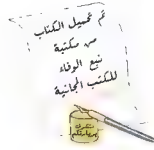 تم تحميل الكتاب
من مكتبة
نبع الوفاء
للكتب المجانية